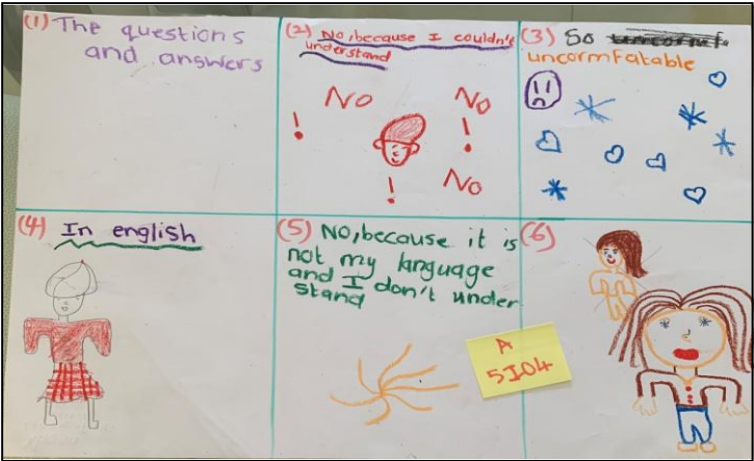 (1) The questions
and answers
(2) No, because I couldn't
understand
No
No
No
! ! !
(3) So
uncormfatable
(4) In english
(5) No, because it is
not my language
and I don't under
stand
(6)
A
5J04